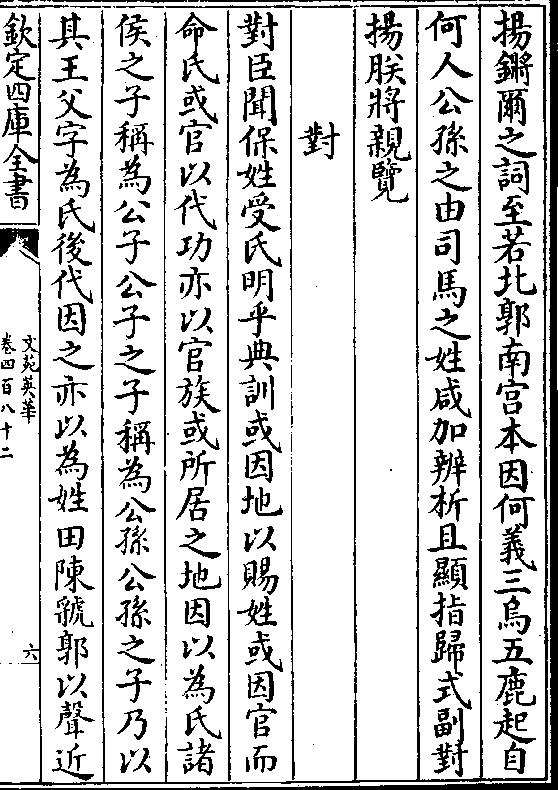 揚鏘爾之詞至若北郭南宫本因何義三烏五鹿起自
何人公孫之由司馬之姓咸加辨析且顯指歸式副對
揚朕將親覽
對
對臣聞保姓受氏明乎典訓或因地以賜姓或因官而
命氏或官以代功亦以官族或所居之地因以為氏諸
侯之子稱為公子公子之子稱為公孫公孫之子乃以
其王父字為氏後代因之亦以為姓田陳虢郭以聲近
欽定四庫全書
文苑英華
卷四百八十二
六